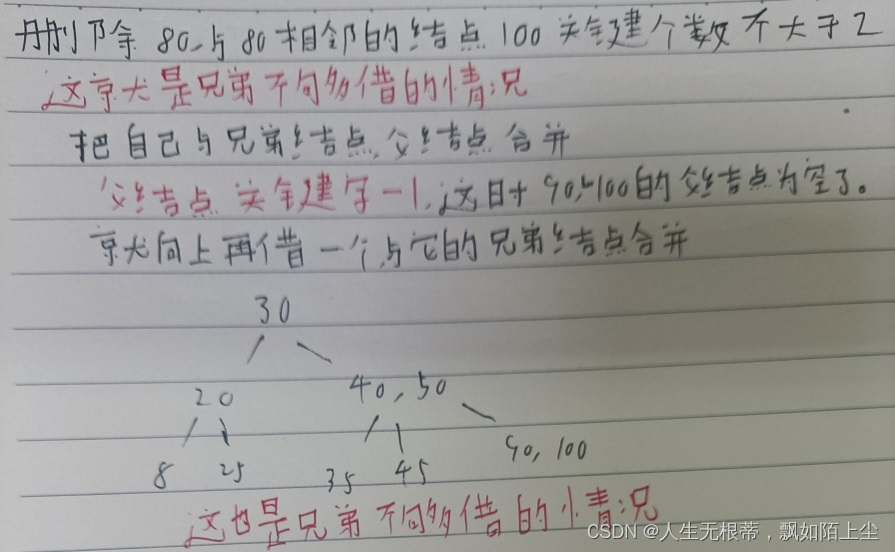 删除 80,与80相邻的结点 100 关键建个数不大于2
这就是兄弟不够多借的情况
把自己与兄弟结点,父结点合并
父结点关键字-1,这时90,100的父结点为空了。
就向上再借一个,与它的兄弟结点合并
30
20 40,50
8 25 35 45 90,100
这也是兄弟不够多借的情况
CSDN @人生无根蒂,飘如陌上尘